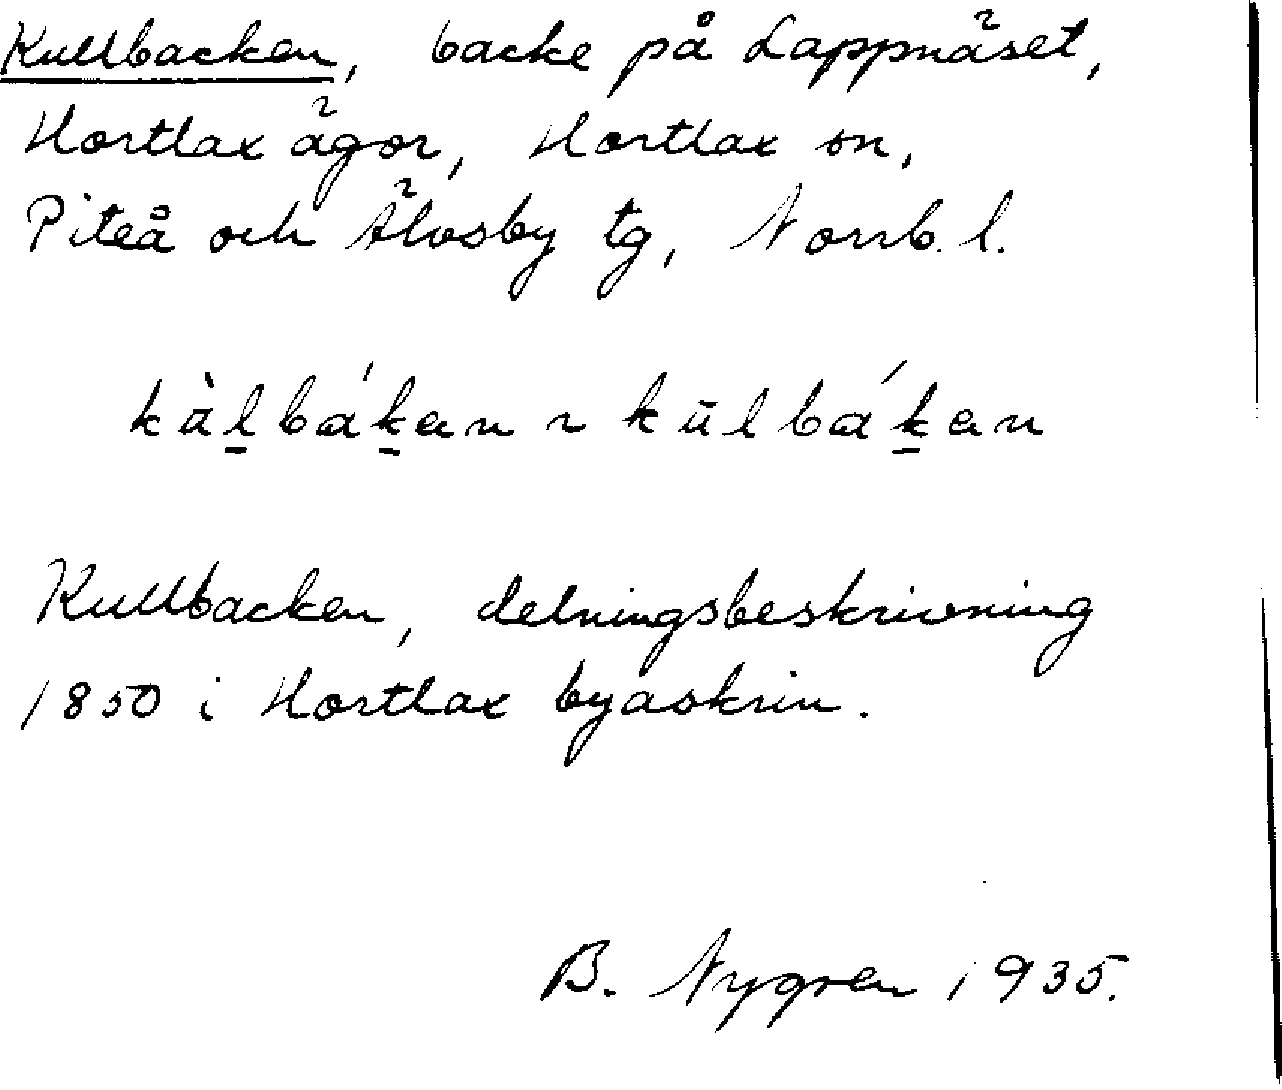 Kullbacken, backe på Lappnäset,
Hortlax ägor, Hortlax sn,
Piteå och Älvsby tg, Norrb. l.
kàl̠bák̠en ~ kūlbák̠en
Kullbacken, delningsbeskrivning
1850 i Hortlax byaskrin.
B. Nygren 1935.